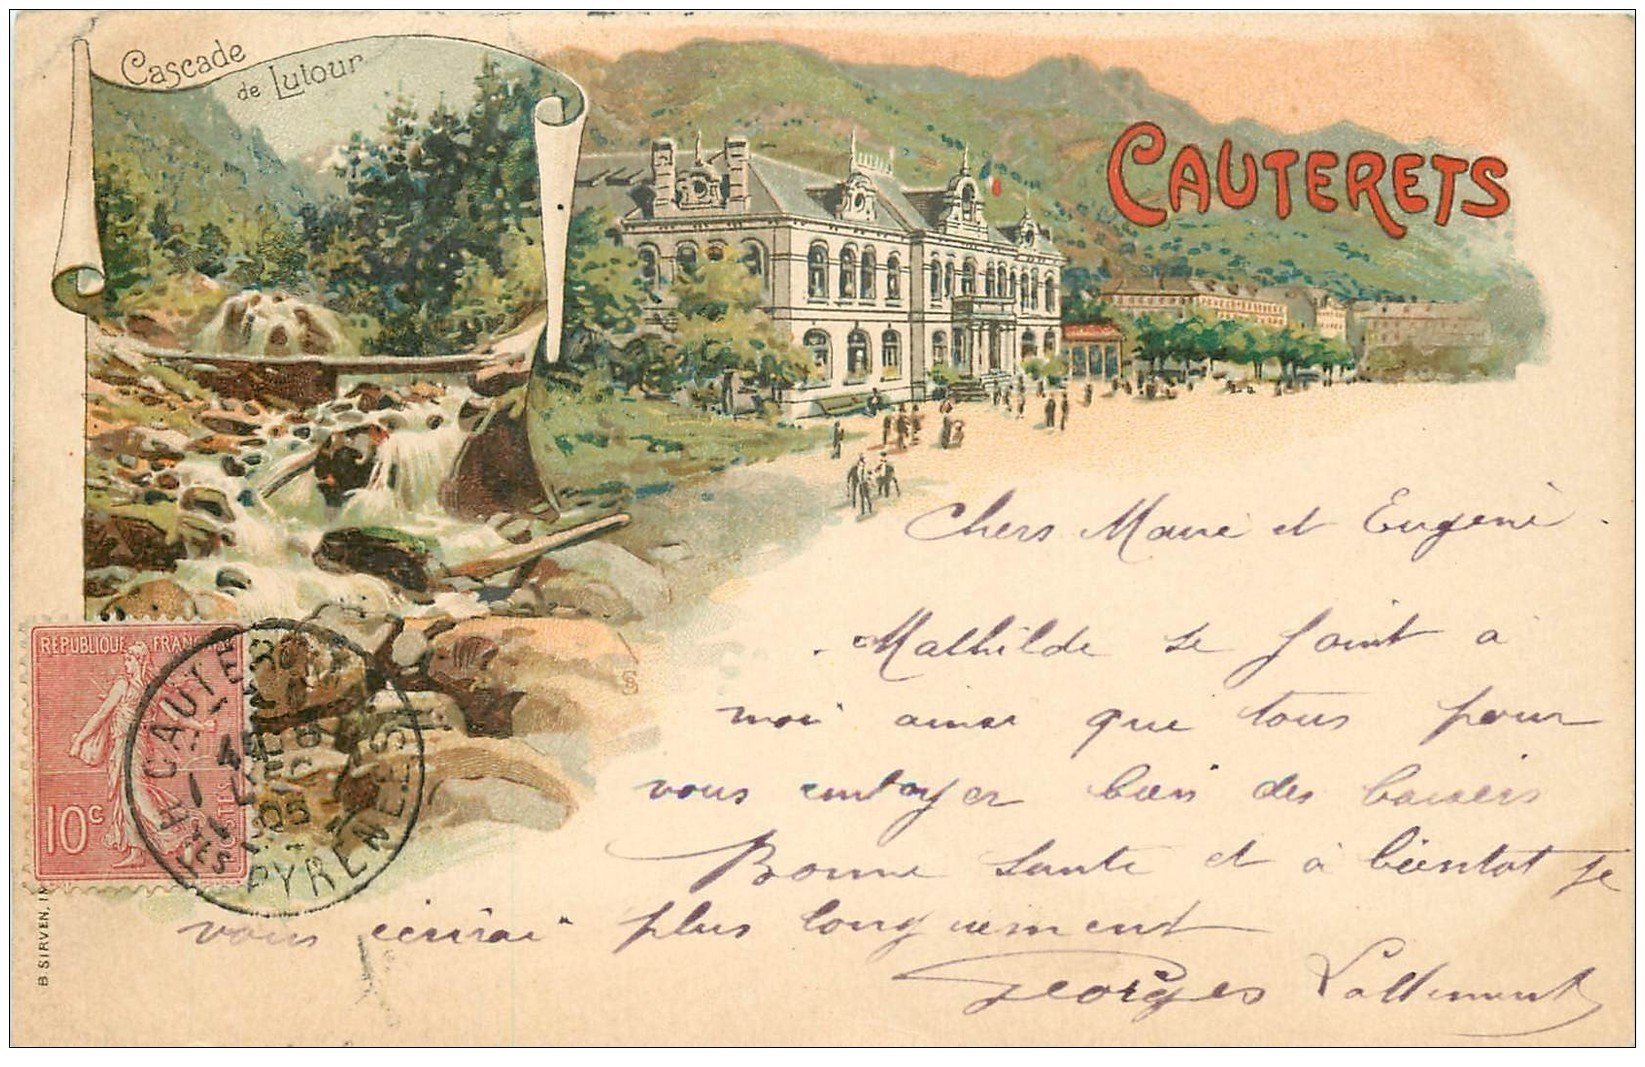 Cascade
de Lutour
CAUTERETS
Chers Marie et Eugénie.
Mathilde se joint a
moi ainsi que tous pour
vous envoyer bien des baisers
Bonne Sante et à bientot je
vous écrirai plus longuement
Georges Lallement
RÉPUBLIQUE FRANÇAISE
10c
POSTES
CAUTERETS
HTES PYRENEES
B. SIRVEN, IM